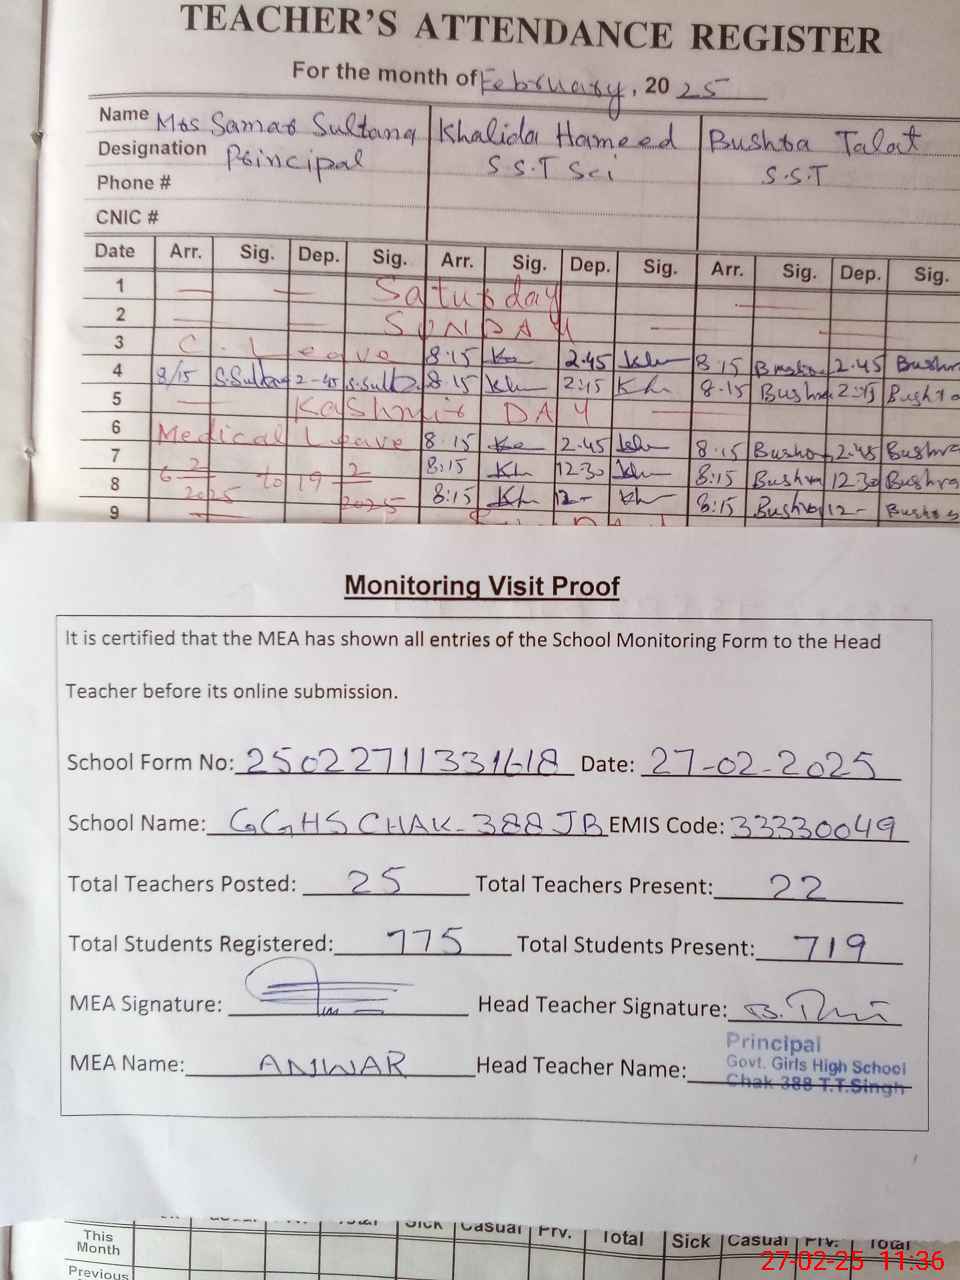 TEACHER'S ATTENDANCE REGISTER
For the month of February, 2025
Name Mrs Samar Sultana Khalida Hameed Bushra Talat
Designation Principal S.S.T Sci S.S.T
Phone #
CNIC #
Date Arr. Sig. Dep. Sig. Arr. Sig. Dep. Sig. Arr. Sig. Dep. Sig.
1 Saturday
2 SUNDAY
3 C. Leave 8:15 2.45 8:15 Bushra 2.45 Bushra
4 8/15 S.Sultan 2-45 S.Sult 8:15 Kh 2:45 Kh 8:15 Bushra 2:45 Bushra
5 Kashmir DAY
6 Medical Leave 8:15 2.45 8:15 Bushra 2.45 Bushra
7 6 2 2025 to 19 2 2025 8:15 Kh 12.30 8:15 Bushra 12.30 Bushra
8 8:15 Kh 12- Kh 8:15 Bushra 12- Bushra
9
Monitoring Visit Proof
It is certified that the MEA has shown all entries of the School Monitoring Form to the Head
Teacher before its online submission.
School Form No: 25022711331618 Date: 27-02-2025
School Name: GGHS CHAK-388 JB EMIS Code: 33330049
Total Teachers Posted: 25 Total Teachers Present: 22
Total Students Registered: 775 Total Students Present: 719
MEA Signature: Head Teacher Signature:
MEA Name: ANWAR Head Teacher Name:
Principal
Govt. Girls High School
Chak 388 T.T.Singh
Total Sick Casual Prv. Total Sick Casual Prv. Total
This
Month
Previous
27-02-25 11:36